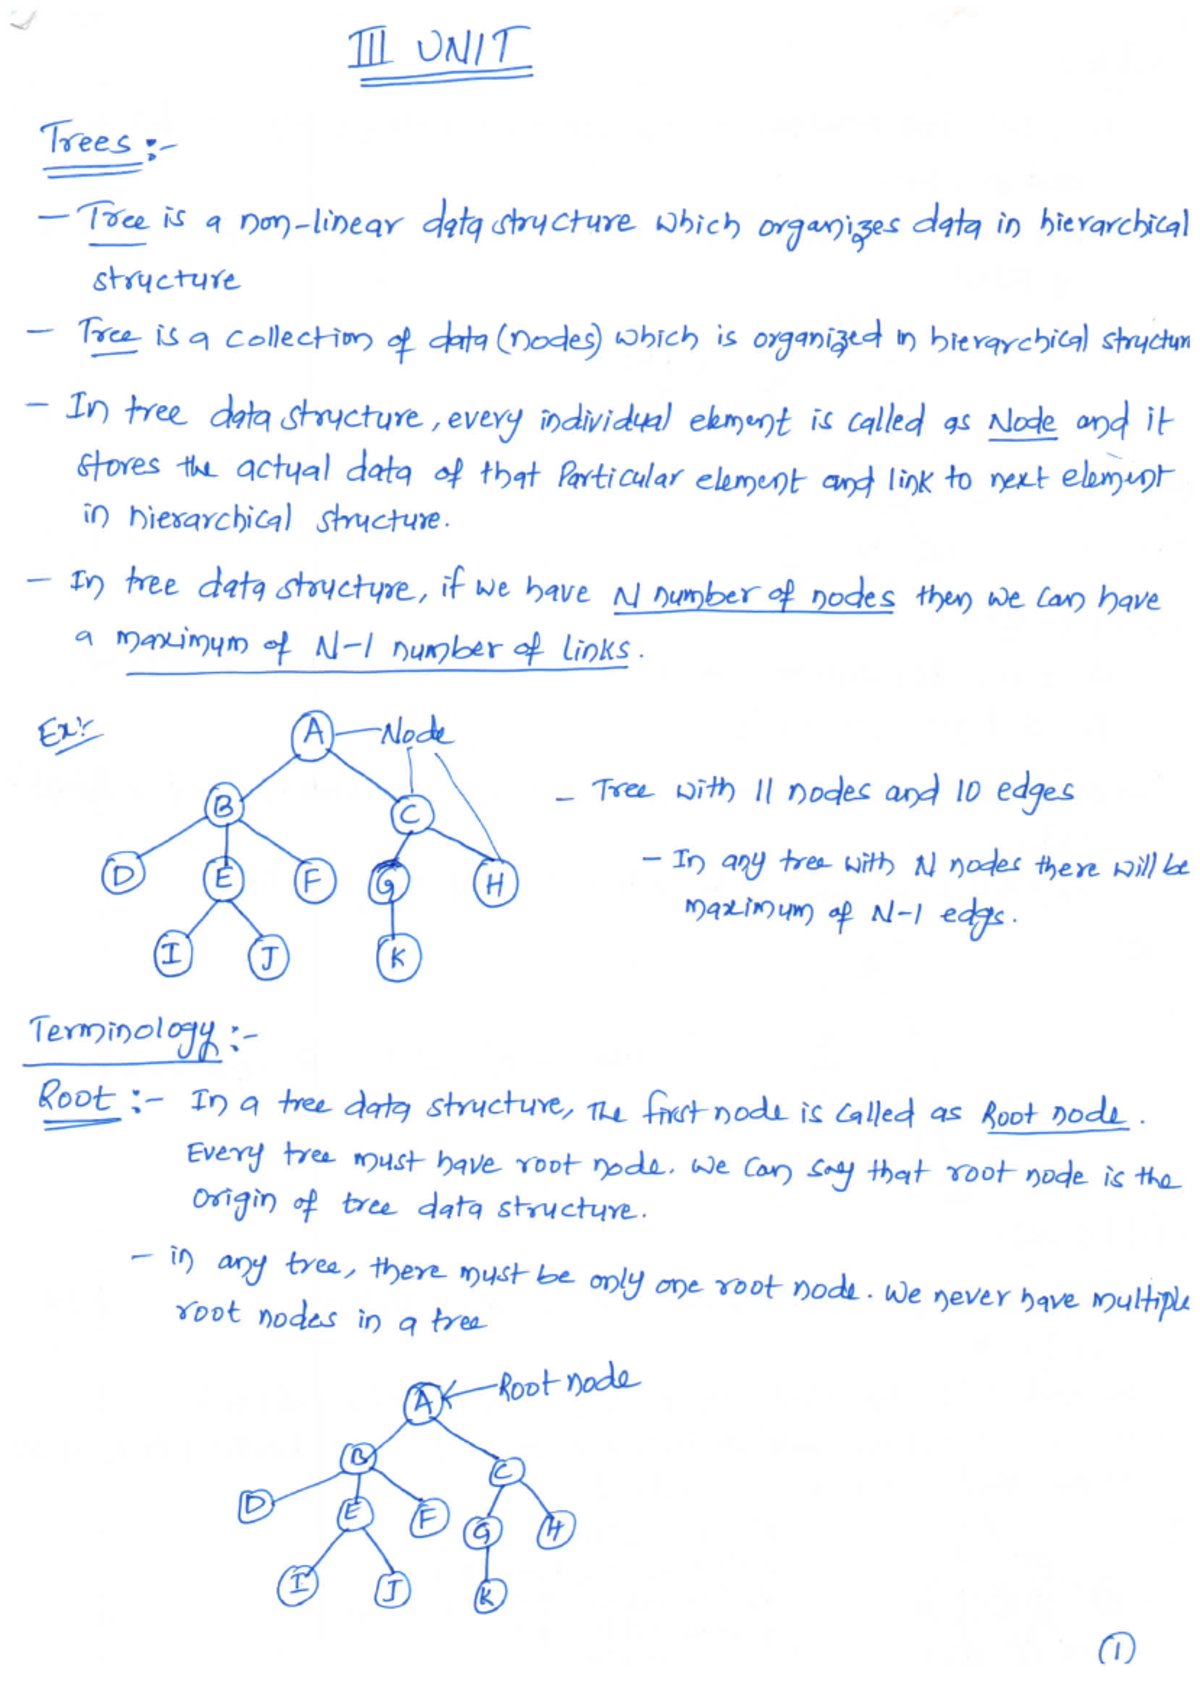 III UNIT
Trees :-
- Tree is a non-linear data structure which organizes data in hierarchical
structure
- Tree is a collection of data (nodes) which is organized in hierarchical structur
- In tree data structure, every individual element is called as Node and it
stores the actual data of that Particular element and link to next element
in hierarchical structure.
- In tree data structure, if we have N number of nodes then we can have
a maximum of N-1 number of links.
Ex:
A Node
B C
- Tree with 11 nodes and 10 edges
D E F G H
- In any tree with N nodes there will be
maximum of N-1 edgs.
I J K
Terminology :-
Root :- In a tree data structure, the first node is called as Root node.
Every tree must have root node. we can say that root node is the
origin of tree data structure.
- in any tree, there must be only one root node. We never have multiple
root nodes in a tree
A Root node
B C
D E F G H
I J K
1